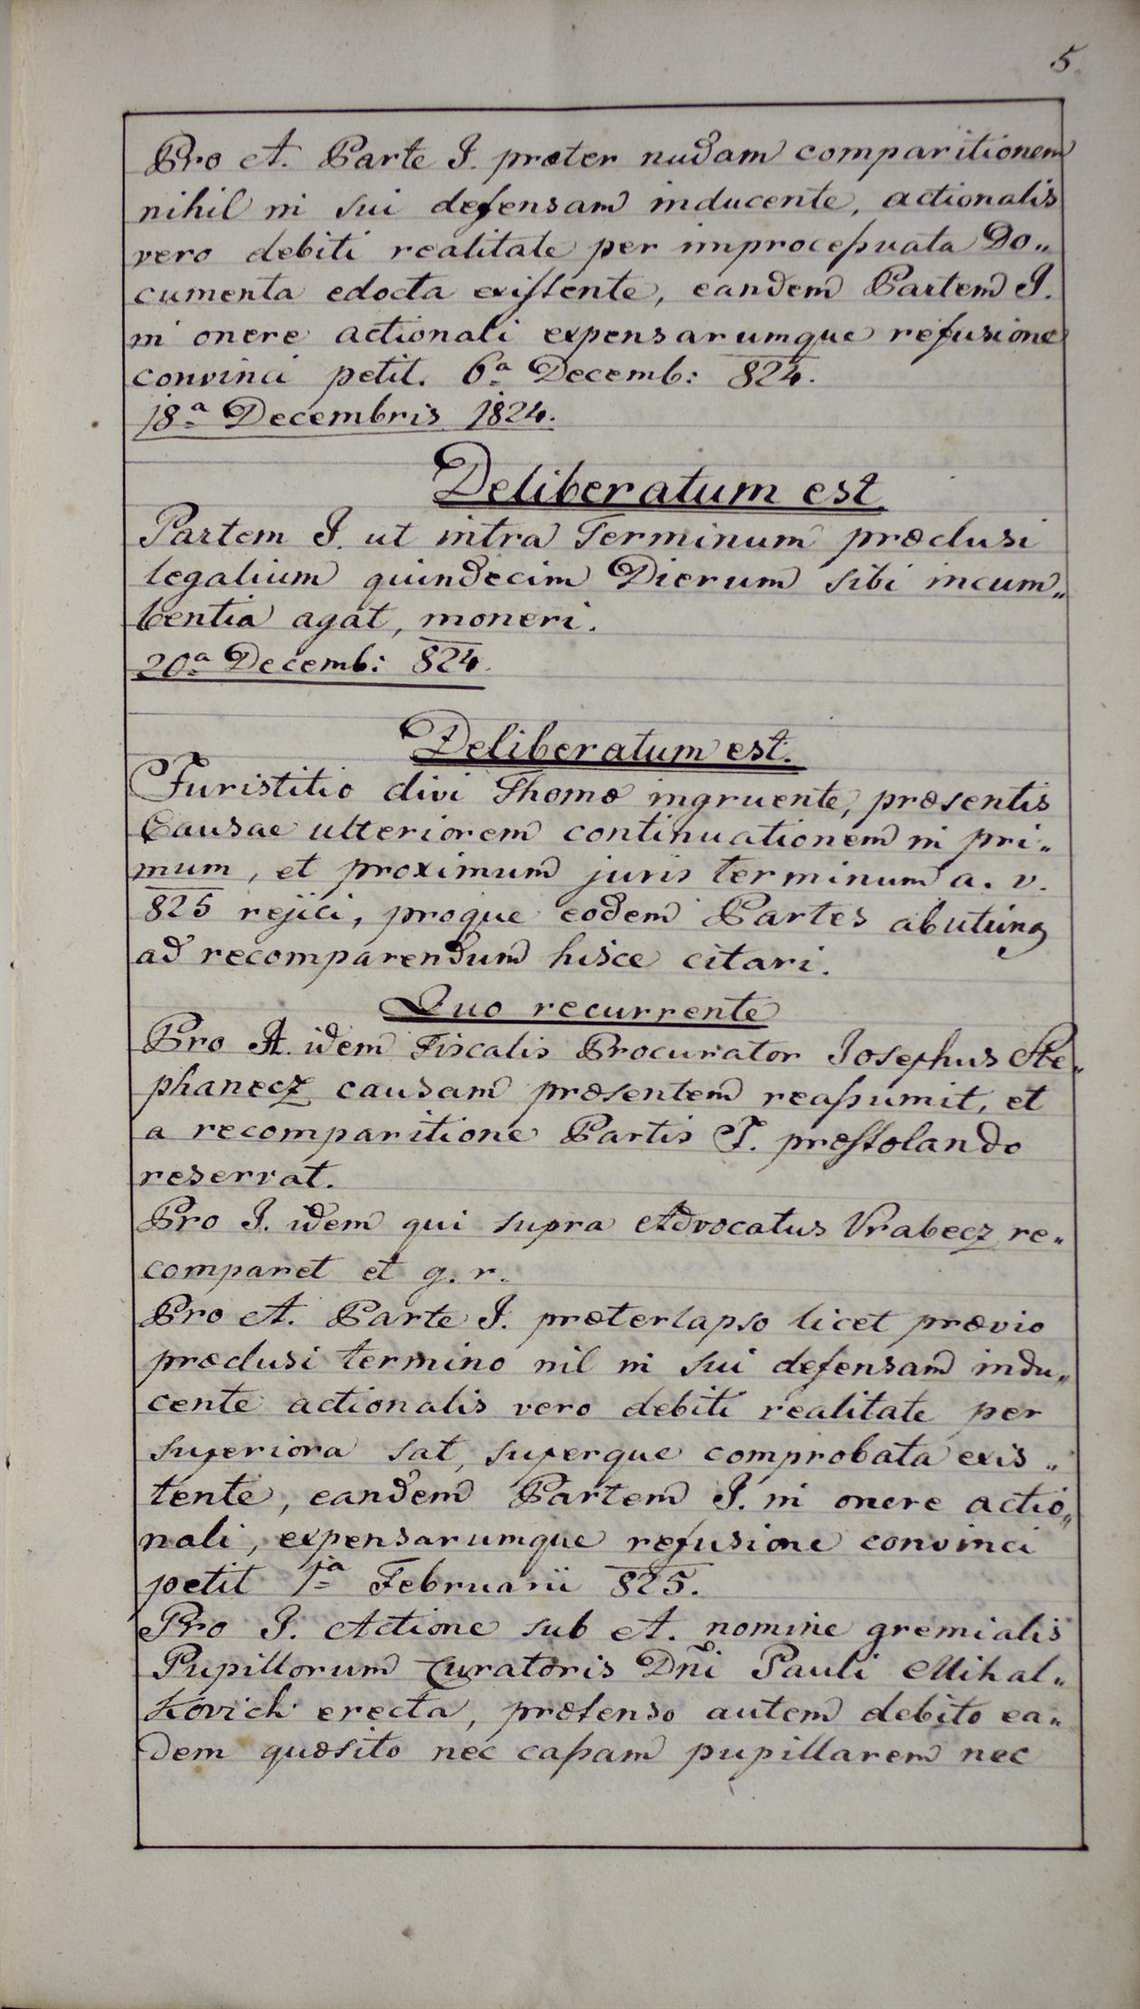 5
Pro A. Parte I. præter nudam comparitionem
nihil in sui defensam inducente, actionalis
vero debiti realitate per improceßuata Do„
cumenta edocta existente, eandem Partem I.
in onere actionali expensarumque refusione
convinci petit. 6ª Decemb: 824.
18ª Decembris 1824.
Deliberatum est
Partem I. ut intra Terminum præclusi
legalium quindecim Dierum sibi incum„
bentia agat, moneri.
20ª Decemb: 824.
Deliberatum est.
Juristitio divi Thomæ ingruente, præsentis
Causae ulteriorem continuationem in pri„
mum, et proximum juris terminum a. v.
825 rejici, proque eodem Partes abutring
ad recomparendum hisce citari.
Quo recurrente
Pro A. idem Fiscalis Procurator Josephus Ste„
phanecz causam præsentem reaßumit, et
a recomparitione Partis I. præstolando
reservat.
Pro I. idem qui supra Advocatus Vrabecz re„
comparet et g. r.
Pro A. Parte I. præterlapso licet prævio
præclusi termino nil in sui defensam indu„
cente actionalis vero debiti realitate per
superiora sat, superque comprobata exis„
tente, eandem Partem I. in onere actio„
nali, expensarumque refusione convinci
petit 1ª Februarii 825.
Pro I. Actione sub A. nomine gremialis
Pupillorum Curatoris Dni Pauli Mihal„
kovich erecta, prætenso autem debito ea„
dem quæsito nec caßam pupillarem nec